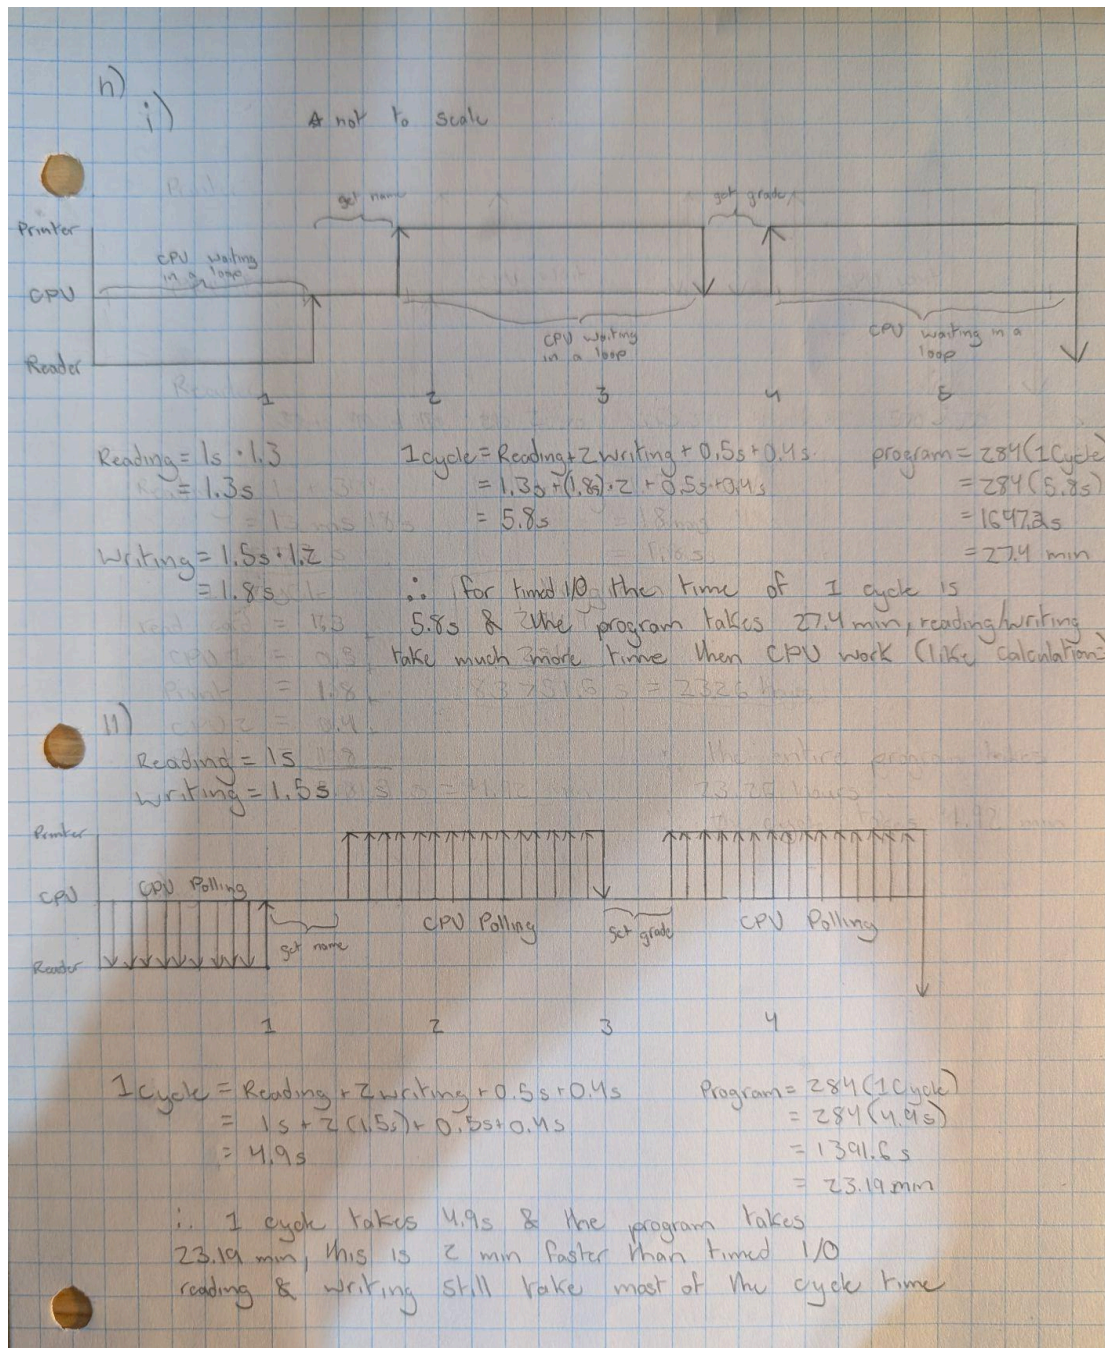 h)
i)
* not to scale
get name
get grade
Printer
CPU waiting
in a loop
CPU
CPU waiting
in a loop
CPU waiting in a
loop
Reader
1 2 3 4 5
Reading = 1s · 1.3
= 1.3s
Writing = 1.5s · 1.2
= 1.8s
1 cycle = Reading + 2 writing + 0.5s + 0.4s
= 1.3s + (1.8s) · 2 + 0.5s + 0.4s
= 5.8s
program = 284(1 Cycle)
= 284(5.8s)
= 1647.2s
= 27.4 min
∴ for timed I/O the time of 1 cycle is
5.8s & the program takes 27.4 min, reading/writing
take much more time then CPU work (like calculation)
ii)
Reading = 1s
Writing = 1.5s
Printer
CPU
CPU Polling
Reader
get name
CPU Polling
get grade
CPU Polling
1 2 3 4
1 cycle = Reading + 2 writing + 0.5s + 0.4s
= 1s + 2(1.5s) + 0.5s + 0.4s
= 4.9s
Program = 284(1 Cycle)
= 284(4.9s)
= 1391.6s
= 23.19 min
∴ 1 cycle takes 4.9s & the program takes
23.19 min, this is 2 min faster than timed I/O
reading & writing still take most of the cycle time